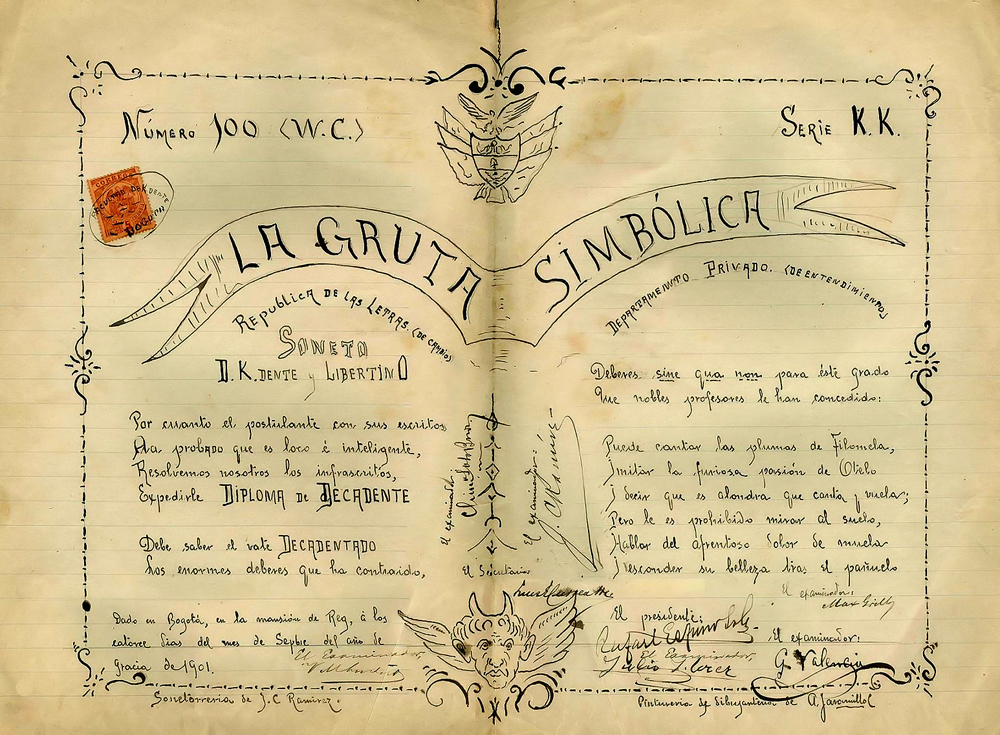 NÚMERO 100 (W.C.)
SERIE K.K.
CORREOS
FACULTAD DE K.DENTE
BOGOTA
LA GRUTA SIMBÓLICA
REPUBLICA DE LAS LETRAS. (DE CAMBIO)
DEPARTAMENTO PRIVADO. (DE ENTENDIMIENTO)
SONETO
D.K.DENTE y LIBERTINO
Por cuanto el postulante con sus escritos
Ha probado que es loco é inteligente,
Resolvemos nosotros los infrascritos,
Expedirle DIPLOMA DE DECADENTE
Debe saber el vate DECADENTADO
Los enormes deberes que ha contraido,
Deberes sine qua non para éste grado
Que nobles profesores le han concedido:
Puede cantar las plumas de Filomela,
Imitar la furiosa pasión de Otelo
I decir que es alondra que canta y vuela;
Pero le es prohibido mirar al suelo,
Hablar del afrentoso dolor de muela
I esconder su belleza tras el pañuelo
El examinador:
El examinador:
El Secretario
Dado en Bogotá, en la mansión de Reg, á los
catorce días del mes de Sepbre del año de
gracia de 1901.
El Examinador,
El presidente:
Rafael Espinosa G.
El Examinador,
Julio Flórez
El examinador:
Max Grillo
El examinador:
G. Valencia
Sonetorreria de J.C Ramirez.
Pintureria de dibujanteria de A. Jaramillo